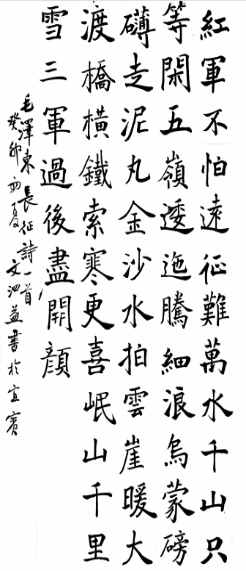 紅軍不怕遠征難萬水千山只
等閑五嶺逶迤騰細浪烏蒙磅
礴走泥丸金沙水拍雲崖暖大
渡橋橫鐵索寒更喜岷山千里
雪三軍過後盡開顏
毛澤東長征詩一首
癸卯初夏文泗益書於宜賓